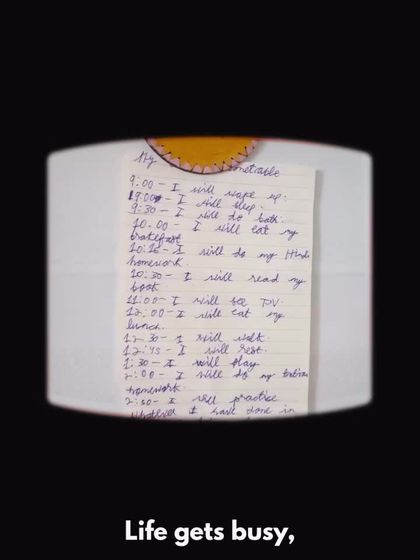 My timetable
9:00 - I will wake up.
I will sleep.
9:30 - I will do bath.
10.00 - I will eat my
brakefast
10:15 - I will do my Hindi
homework.
10:30 - I will read my
book
11:00 - I will see T.V.
12:00 - I will eat my
lunch.
12:30 - I will walk.
12:45 - I will rest.
1:30 - I will play
2:00 - I will do my
homework.
2:30 - I will practice
whatever I have done in
Life gets busy,